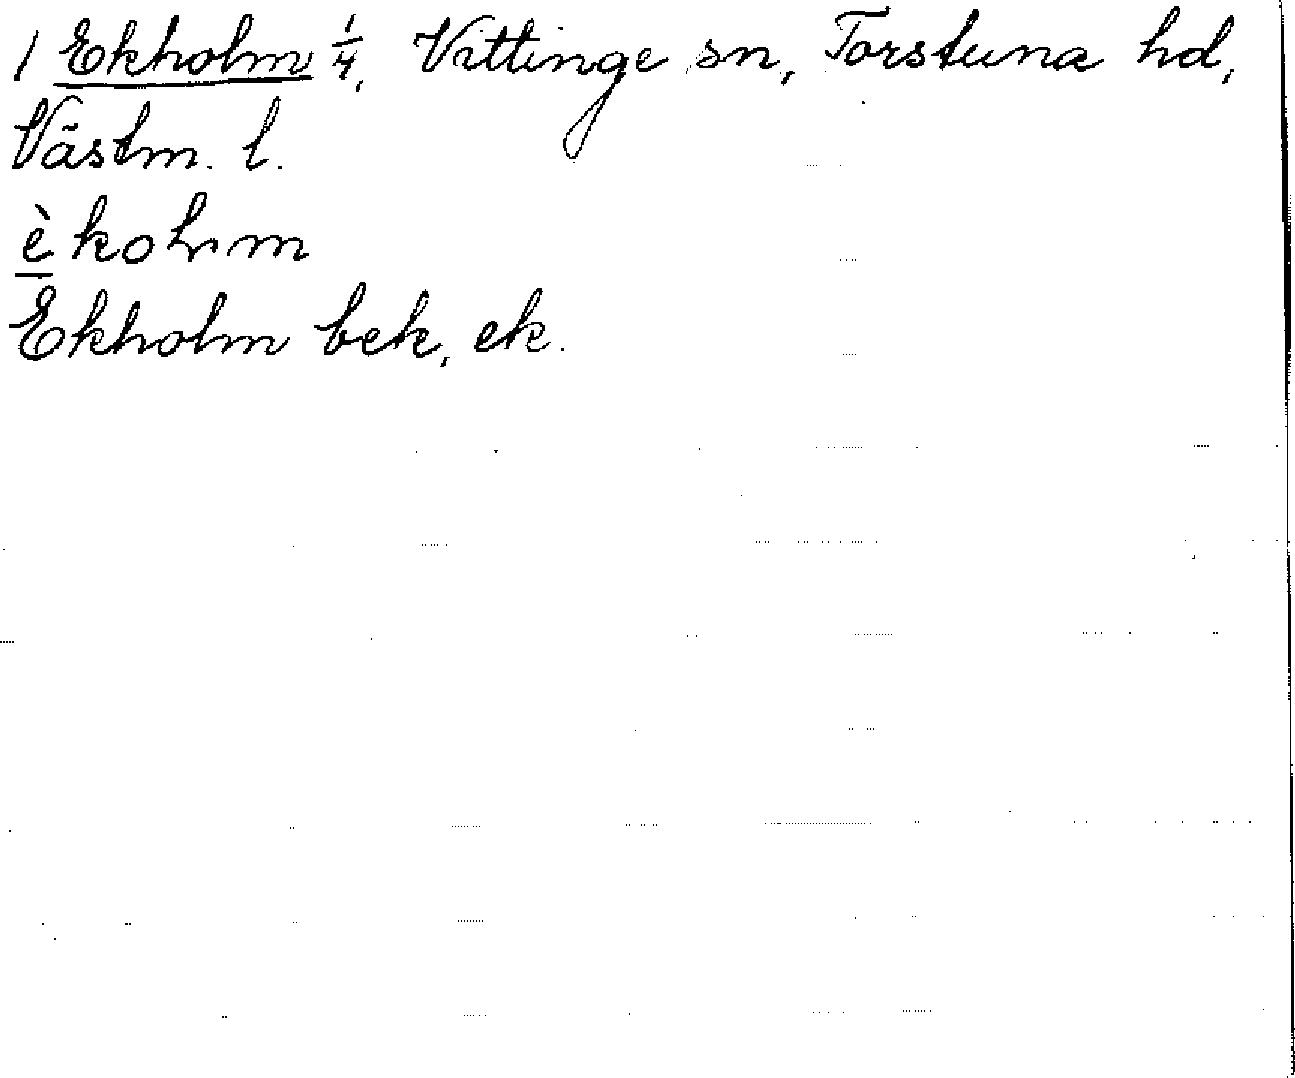 1 Ekholm 1/4, Vittinge sn, Torstuna hd,
Västm. l.
èkohm
Ekholm bek, ek.